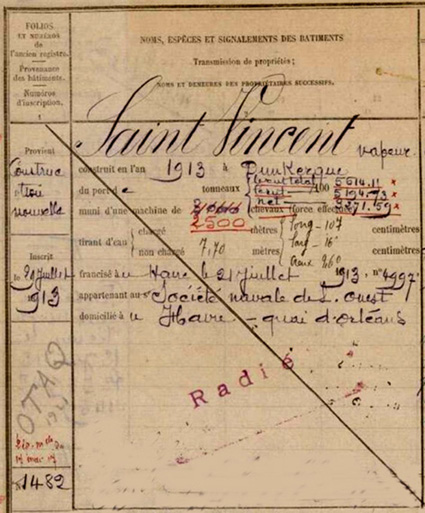 FOLIOS
ET NUMÉROS
de
l'ancien registre.
Provenance
des bâtiments.
Numéros
d'inscription.
1
NOMS, ESPÈCES ET SIGNALEMENTS DES BATIMENTS
Transmission de propriétés;
NOMS ET DEMEURES DES PROPRIÉTAIRES SUCCESSIFS.
Saint Vincent vapeur
Provient
Construc
tion
nouvelle
construit en l'an 1913 à Dunkerque
du port de tonneaux
brut total 5614.11
brut 5194.73
net 3271.59
muni d'une machine de chevaux (force effective)
2500
tirant d'eau
chargé mètres centimètres
non chargé 7,70 mètres centimètres
long - 107
larg - 15
Inscrit
le 21 juillet
1913
francisé au Havre le 21 juillet 1913, n° 4997
appartenant au Société navale de l'ouest
domicilié au Havre - quai d'orléans
Radié
OTAQ
N° 1482